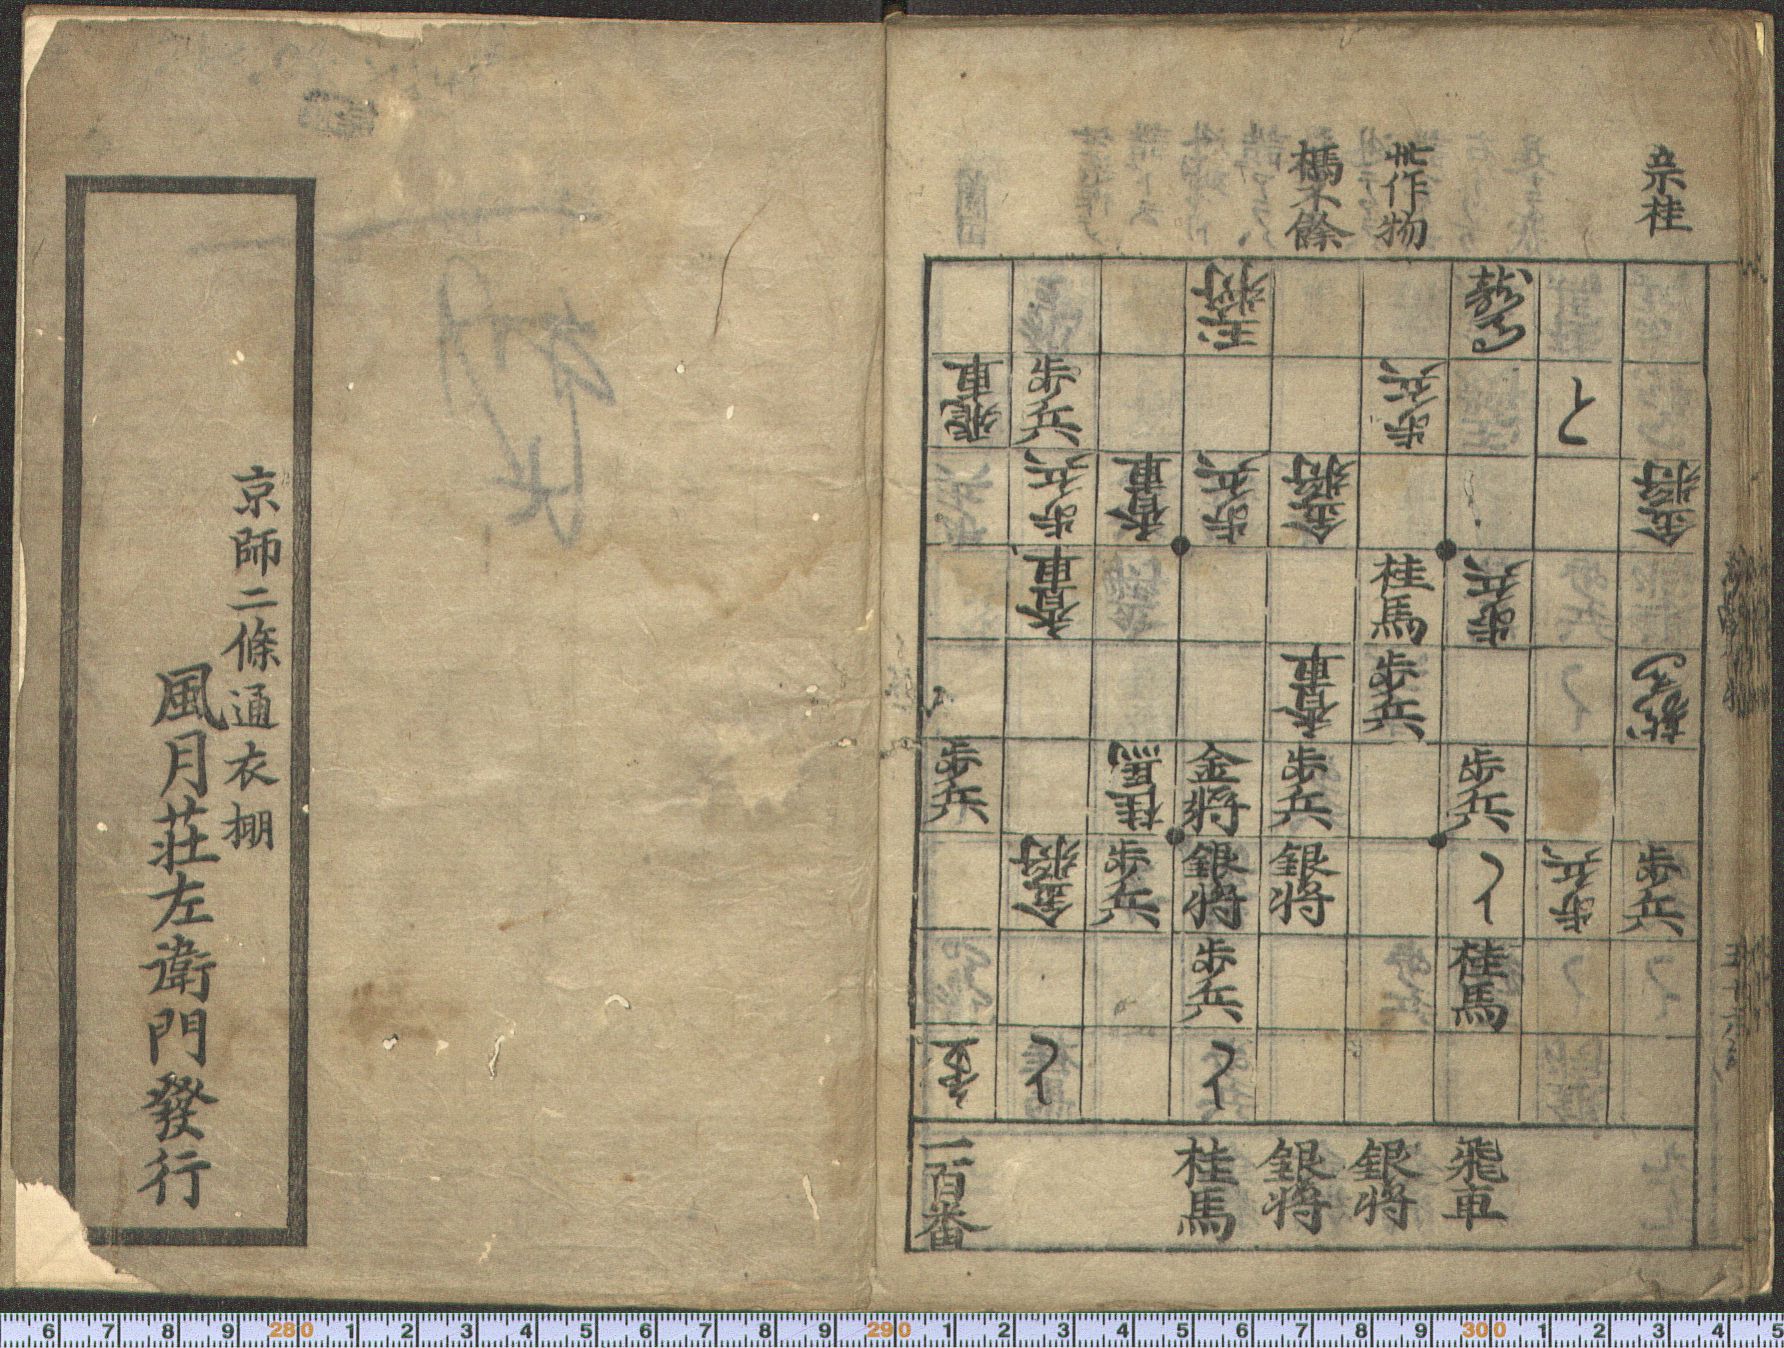 宗桂
丗作物
玉将
龍馬
飛車 歩兵 歩兵 と
歩兵 香車 歩兵 金将 金将
香車 桂馬 歩兵
香車 歩兵 龍馬
歩兵 桂馬 金将 歩兵 歩兵
金将 歩兵 銀将 銀将 歩兵 歩兵
歩兵 桂馬
桂馬 銀将 銀将 飛車
一百番
京師二條通衣棚
風月荘左衛門發行
6 7 8 9 280 1 2 3 4 5 6 7 8 9 290 1 2 3 4 5 6 7 8 9 300 1 2 3 4 5